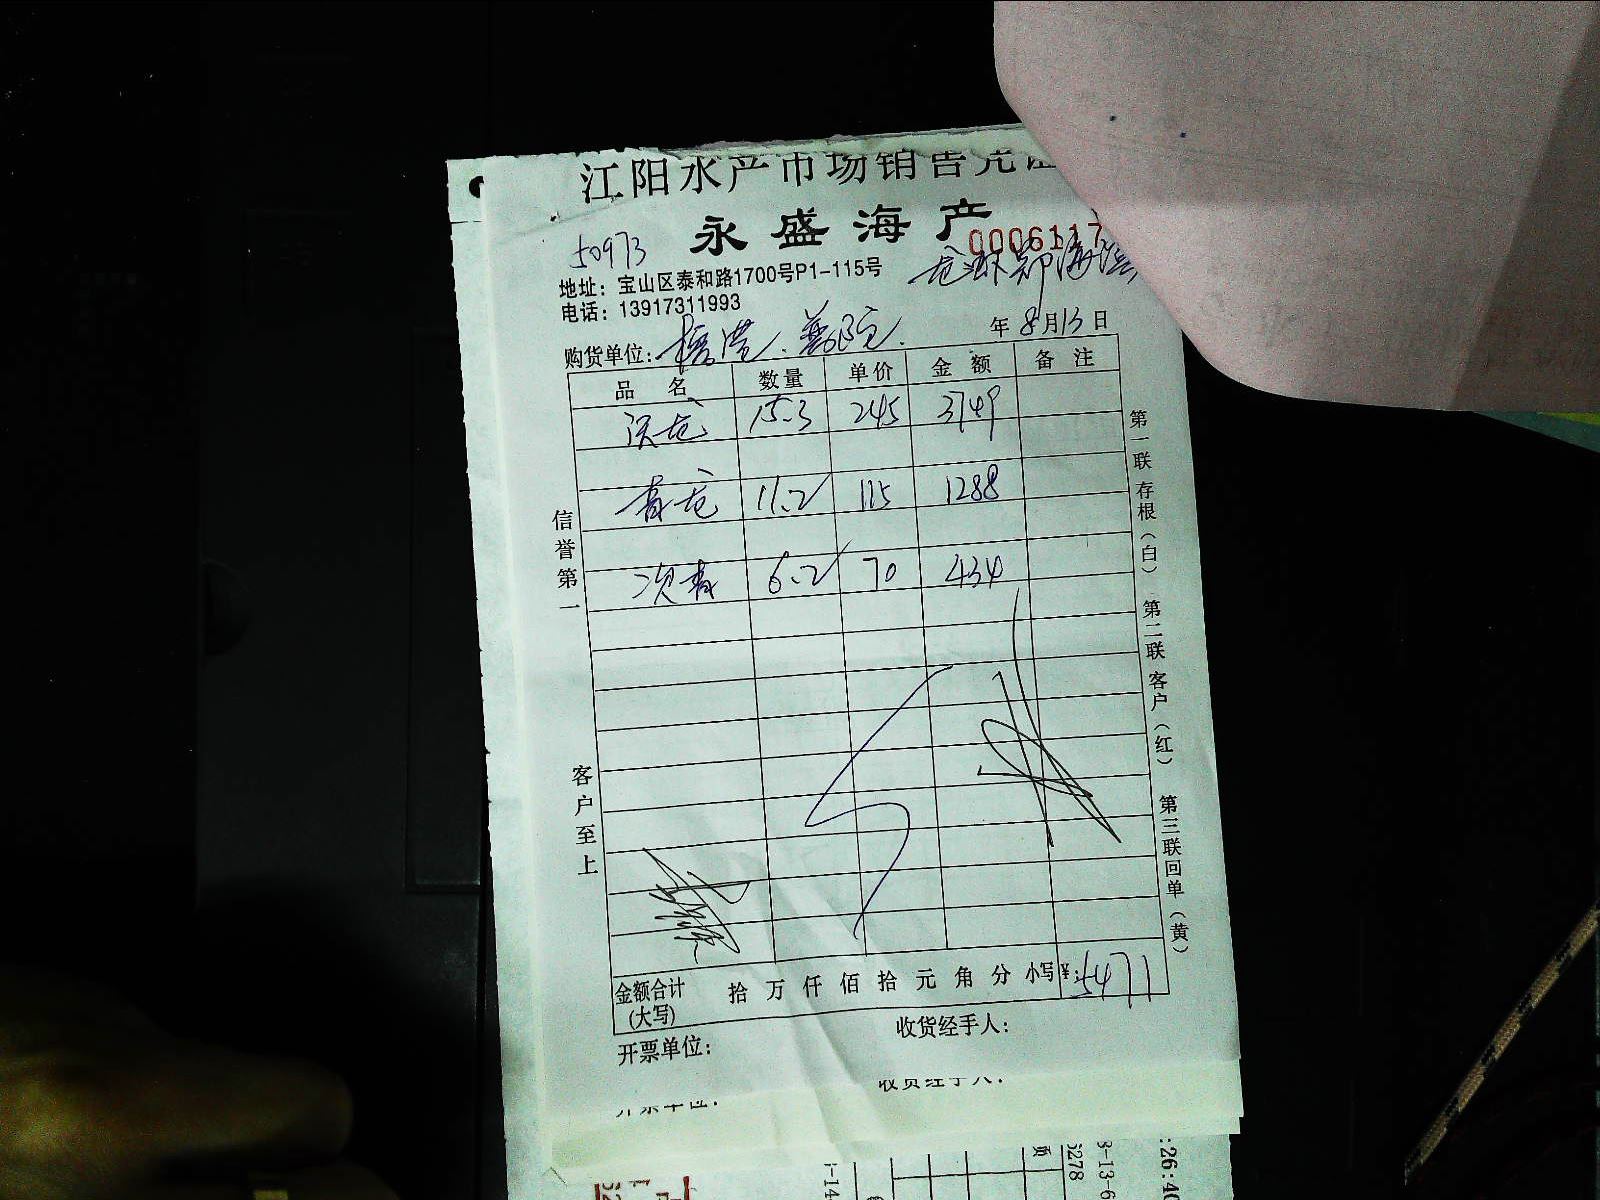 江阳水产市场销售凭证
永盛海产
0006117
50973
地址：宝山区泰和路1700号P1-115号
电话：13917311993
购货单位：
年8月13日
品 名 数量 单价 金 额 备 注
15.3 245 3749
青龙 11.2 115 1288
次青 6.2 70 434
信誉第一
客户至上
第一联 存根（白） 第二联 客户（红） 第三联 回单（黄）
金额合计 拾 万 仟 佰 拾 元 角 分 小写¥：5471
(大写)
收货经手人：
开票单位：
收货经手人：
开票单位：
5278
:26:40